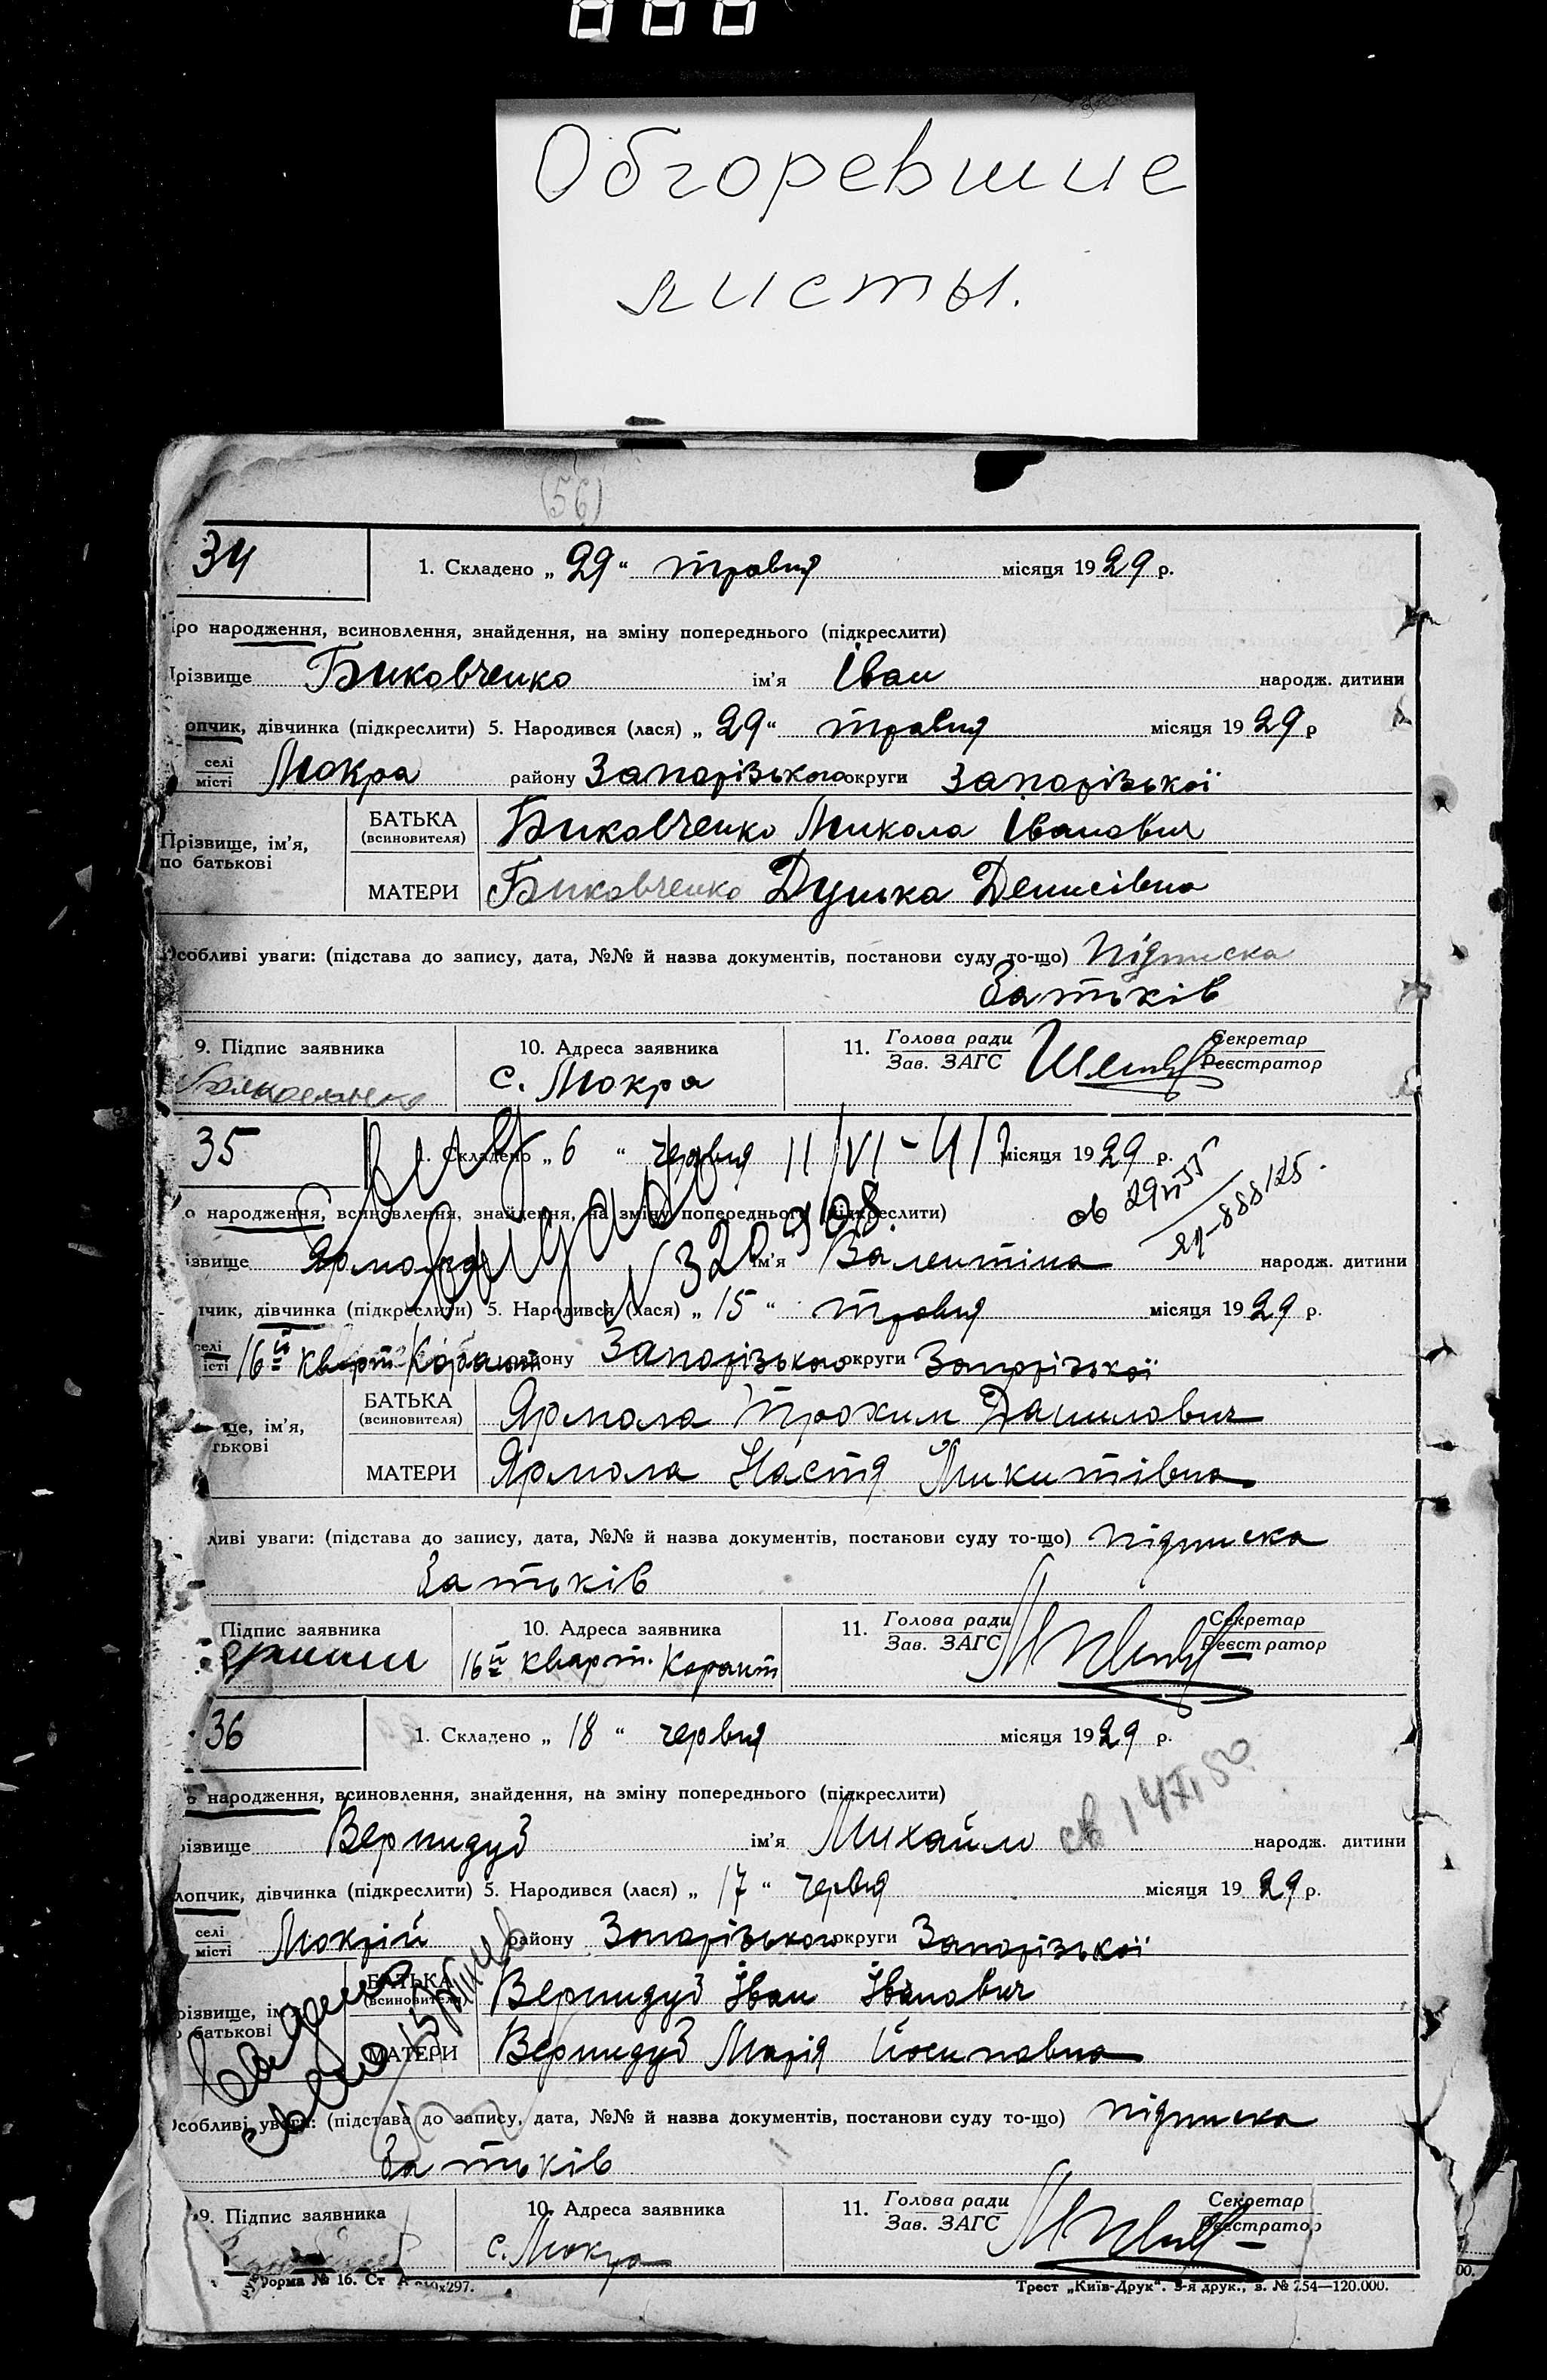 000
Обгоревшие
листы.
(56)
34
1. Складено „ 29 “ травня місяця 1929 р.
про народження, всиновлення, знайдення, на зміну попереднього (підкреслити)
Прізвище Биковченко ім'я Іван народж. дитини
опчик, дівчинка (підкреслити) 5. Народився (лася) „ 29 “ травня місяця 1929 р
селі
місті Мокра району Запорізького округи Запорізької
Прізвище, ім'я,
по батькові
БАТЬКА
(всиновителя) Биковченко Микола Іванович
МАТЕРИ Биковченко Душка Денисівна
Особливі уваги: (підстава до запису, дата, №№ й назва документів, постанови суду то-що) підписка
батьків
9. Підпис заявника 10. Адреса заявника 11. Голова ради Секретар
Зав. ЗАГС Реєстратор
с. Мокра
35
1. Складено „ 6 “ червня місяця 1929 р.
11/VI-41
о народження, всиновлення, знайдення, на зміну попереднього (підкреслити)
ізвище Ярмола ім'я Валентіна народж. дитини
пчик, дівчинка (підкреслити) 5. Народився (лася) „ 15 “ травня місяця 1929 р.
селі
місті 16й кварт Карант району Запорізького округи Запорізької
ще, ім'я,
тькові
БАТЬКА
(всиновителя) Ярмола Трохим Данилович
МАТЕРИ Ярмола Настя Микитівна
ливі уваги: (підстава до запису, дата, №№ й назва документів, постанови суду то-що) підписка
батьків
Підпис заявника 10. Адреса заявника 11. Голова ради Секретар
Зав. ЗАГС Реєстратор
16й кварт. Карант
36
1. Складено „ 18 “ червня місяця 1929 р.
о народження, всиновлення, знайдення, на зміну попереднього (підкреслити)
різвище Вернидуб ім'я Михайло народж. дитини
лопчик, дівчинка (підкреслити) 5. Народився (лася) „ 17 “ червня місяця 1929 р.
селі
місті Мокрій району Запорізького округи Запорізької
різвище, ім
о батькові
БАТЬКА
(всиновителя) Вернидуб Іван Іванович
МАТЕРИ Вернидуб Марія Йосиповна
Особливі уваги: (підстава до запису, дата, №№ й назва документів, постанови суду то-що) підписка
батьків
9. Підпис заявника 10. Адреса заявника 11. Голова ради Секретар
Зав. ЗАГС Реєстратор
с. Мокра
Форма № 16. Ст А 210х297.
Трест „Київ-Друк“. 3-я друк., з. № 254—120.000.